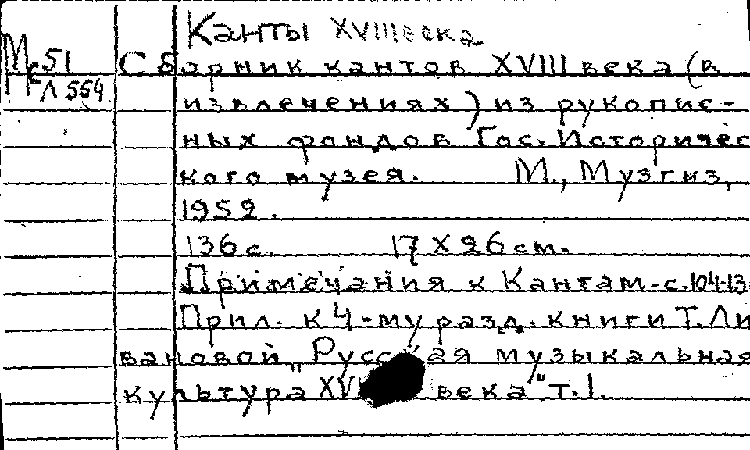 Канты XVIII века
Мс 51 Сборник кантов XVIII века (в
Л 554
извлечениях) из рукопис-
ных фондов Гос. Историчес
кого музея. М., Музгиз,
1952.
136 с. 17 X 26 см.
Примечания к Кантам-с.104-13
Прил. к 4-му разд. книги Т. Ли
вановой „Русская музыкальная
культура XV века" т. 1.